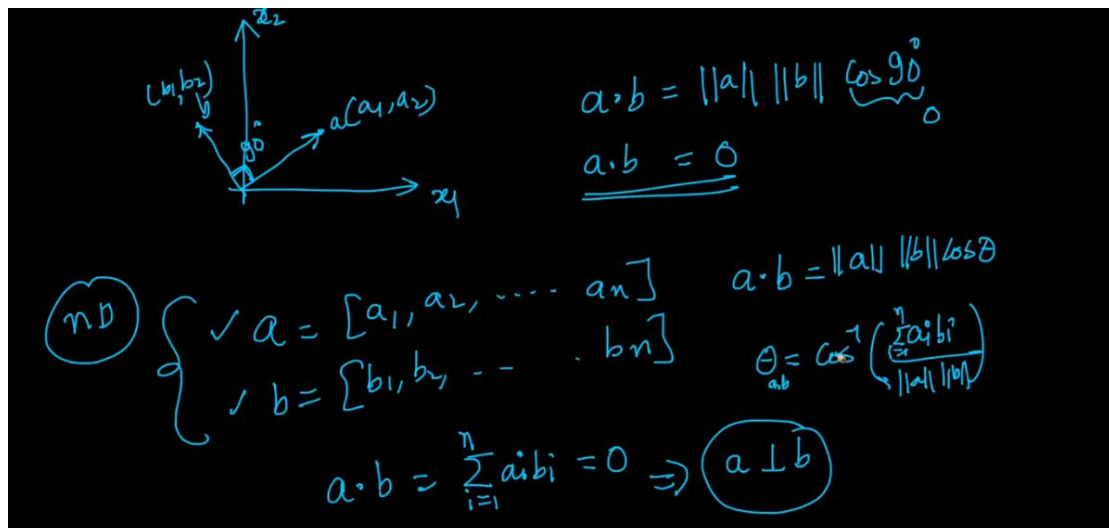 x₂
(b₁,b₂)
b
90°
a(a₁,a₂)
x₁
a·b = ||a|| ||b|| cos 90°
0
a·b = 0
nD
✓ a = [a₁, a₂, ..... an]
✓ b = [b₁, b₂, -- . bn]
a·b = ||a|| ||b|| cosθ
θa,b = cos⁻¹ (∑ⁿᵢ₌₁ aᵢbᵢ / ||a|| ||b||)
a·b = ∑ⁿᵢ₌₁ aᵢbᵢ = 0 ⇒ a ⊥ b